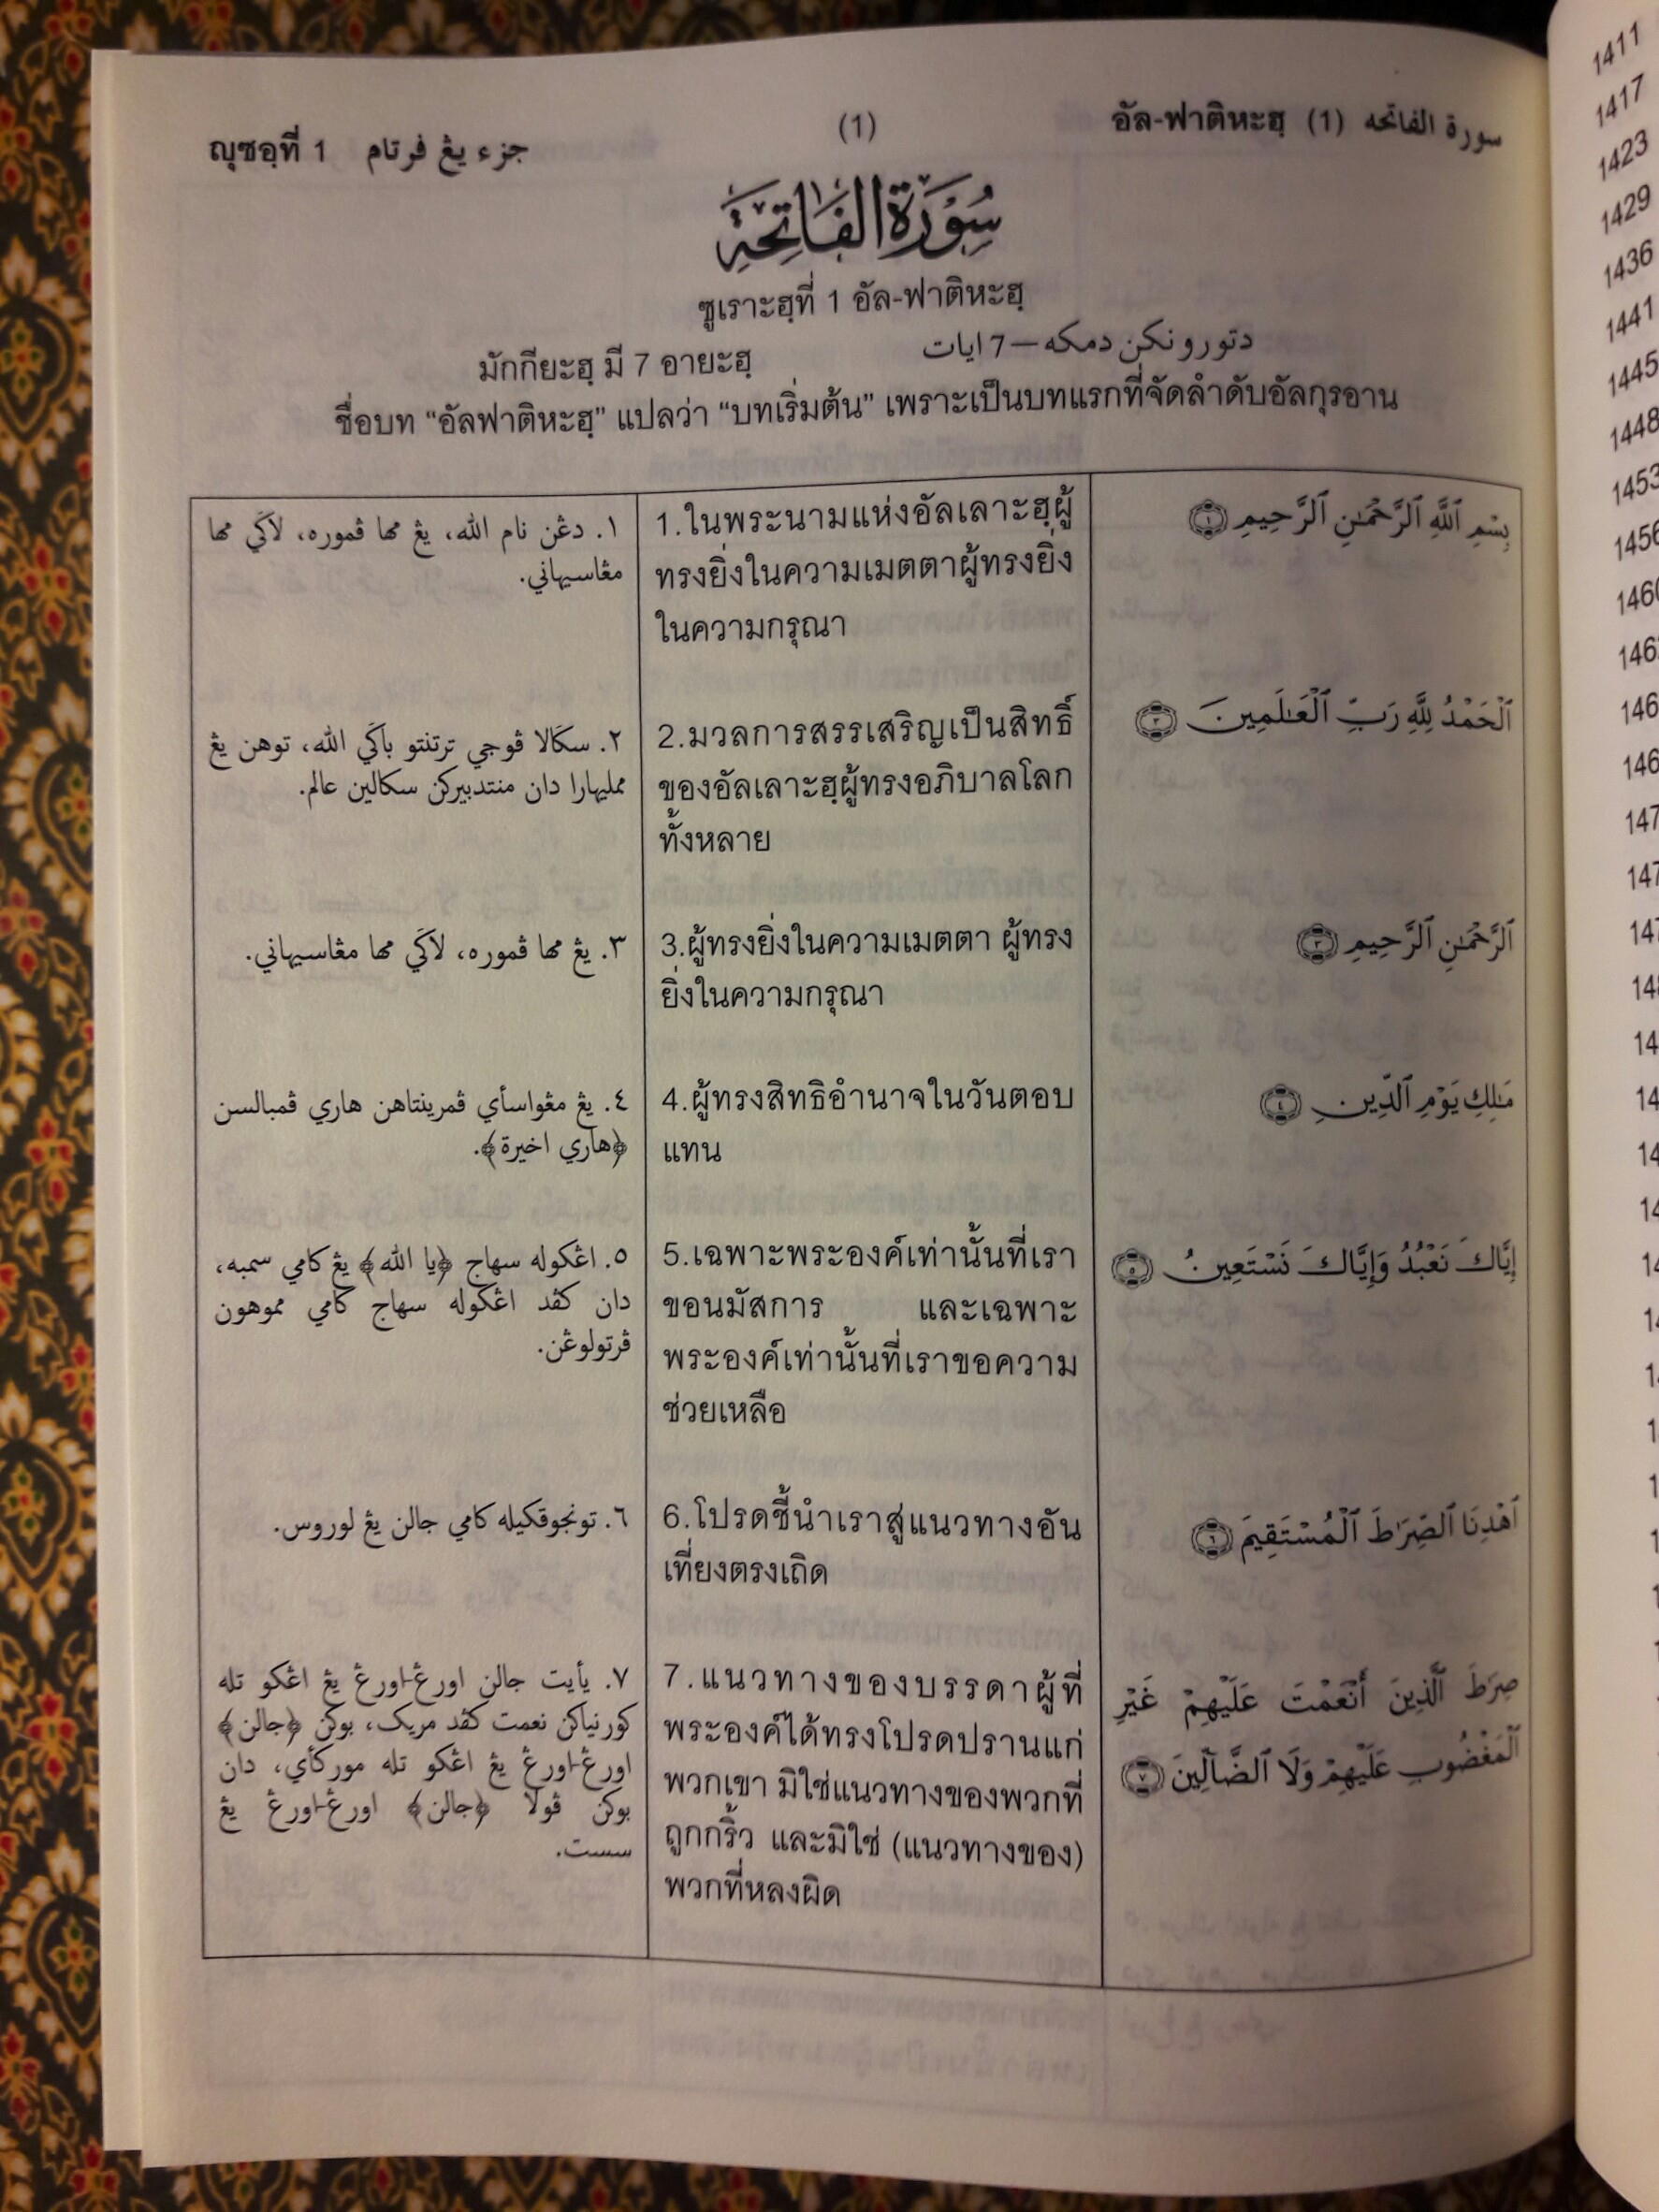 ญุซอฺที่ 1 جزء يڠ فرتام
(1)
อัล-ฟาติหะฮฺ (1) سورة الفاتحه
سُوْرَةُ الفَاتِحَةِ
ซูเราะฮฺที่ 1 อัล-ฟาติหะฮฺ
มักกียะฮฺ มี 7 อายะฮฺ
دتورونكن دمكه — 7 ايات
ชื่อบท “อัลฟาติหะฮฺ” แปลว่า “บทเริ่มต้น” เพราะเป็นบทแรกที่จัดลำดับอัลกุรอาน
بِسْمِ ٱللَّهِ ٱلرَّحْمَٰنِ ٱلرَّحِيمِ ١
1.ในพระนามแห่งอัลเลาะฮฺผู้
ทรงยิ่งในความเมตตาผู้ทรงยิ่ง
ในความกรุณา
١. دڠن نام الله، يڠ مها ڤموره، لاݢي مها
مڠاسيهاني.
ٱلْحَمْدُ لِلَّهِ رَبِّ ٱلْعَٰلَمِينَ ٢
2.มวลการสรรเสริญเป็นสิทธิ์
ของอัลเลาะฮฺผู้ทรงอภิบาลโลก
ทั้งหลาย
٢. سݢالا ڤوجي ترتنتو باݢي الله، توهن يڠ
ممليهارا دان منتدبيركن سكالين عالم.
ٱلرَّحْمَٰنِ ٱلرَّحِيمِ ٣
3.ผู้ทรงยิ่งในความเมตตา ผู้ทรง
ยิ่งในความกรุณา
٣. يڠ مها ڤموره، لاݢي مها مڠاسيهاني.
مَٰلِكِ يَوْمِ ٱلدِّينِ ٤
4.ผู้ทรงสิทธิอำนาจในวันตอบ
แทน
٤. يڠ مڠواسأي ڤمرينتاهن هاري ڤمبالسن
﴿هاري اخيرة﴾.
إِيَّاكَ نَعْبُدُ وَإِيَّاكَ نَسْتَعِينُ ٥
5.เฉพาะพระองค์เท่านั้นที่เรา
ขอนมัสการ และเฉพาะ
พระองค์เท่านั้นที่เราขอความ
ช่วยเหลือ
٥. اڠكوله سهاج ﴿يا الله﴾ يڠ كامي سمبه،
دان كڤد اڠكوله سهاج كامي مموهون
ڤرتولوڠن.
ٱهْدِنَا ٱلصِّرَٰطَ ٱلْمُسْتَقِيمَ ٦
6.โปรดชี้นำเราสู่แนวทางอัน
เที่ยงตรงเถิด
٦. تونجوقكيله كامي جالن يڠ لوروس.
صِرَٰطَ ٱلَّذِينَ أَنْعَمْتَ عَلَيْهِمْ غَيْرِ
ٱلْمَغْضُوبِ عَلَيْهِمْ وَلَا ٱلضَّآلِّينَ ٧
7.แนวทางของบรรดาผู้ที่
พระองค์ได้ทรงโปรดปรานแก่
พวกเขา มิใช่แนวทางของพวกที่
ถูกกริ้ว และมิใช่ (แนวทางของ)
พวกที่หลงผิด
٧. يأيت جالن اورڠ-اورڠ يڠ اڠكو تله
كورنياكن نعمت كڤد مريك، بوكن ﴿جالن﴾
اورڠ-اورڠ يڠ اڠكو تله موركأي، دان
بوكن ڤولا ﴿جالن﴾ اورڠ-اورڠ يڠ
سست.
1411
1417
1423
1429
1436
1441
1445
1448
1453
1456